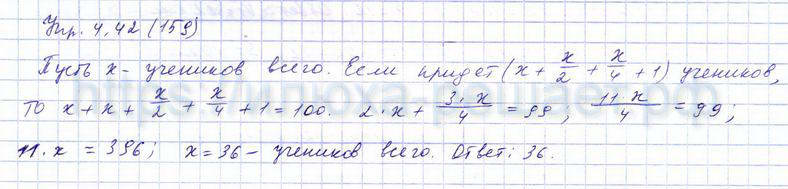 Упр. 4.42 (159)
Пусть х - учеников всего. Если придет (x + x/2 + x/4 + 1) учеников,
то x + x + x/2 + x/4 + 1 = 100. 2·x + 3·x/4 = 99; 11·x/4 = 99;
11·x = 396; x = 36 - учеников всего. Ответ: 36.